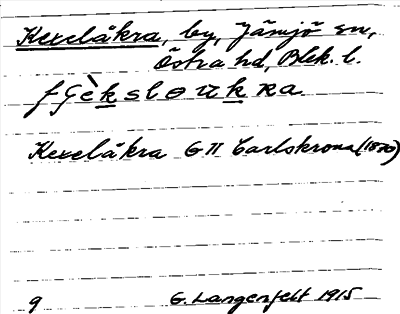 Kexelåkra, by, Jämjö sn,
Östra hd, Blek. l.
Kexelåkra G II Carlskrona (1870)
9 G. Langenfelt 1915